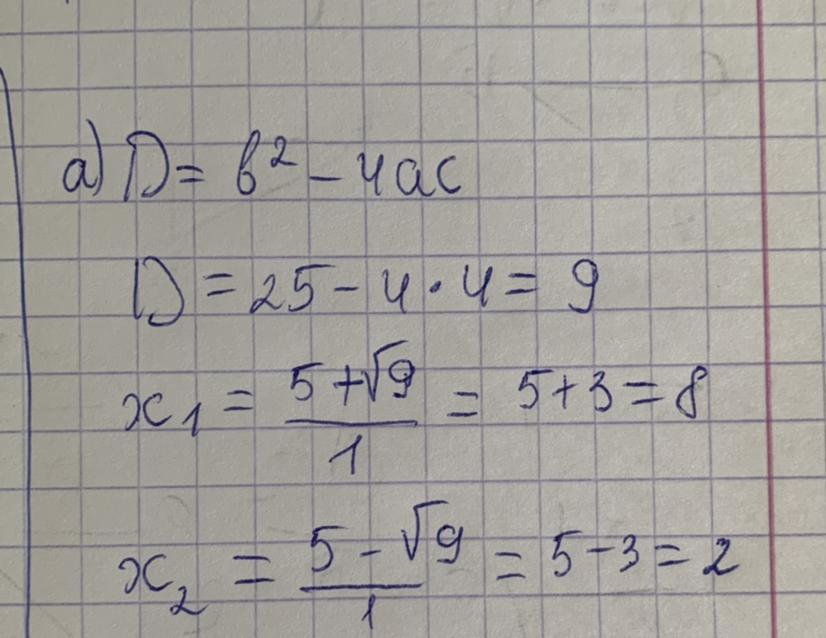 а) D = b² - 4ac
D = 25 - 4 · 4 = 9
x₁ = (5 + √9)/1 = 5 + 3 = 8
x₂ = (5 - √9)/1 = 5 - 3 = 2